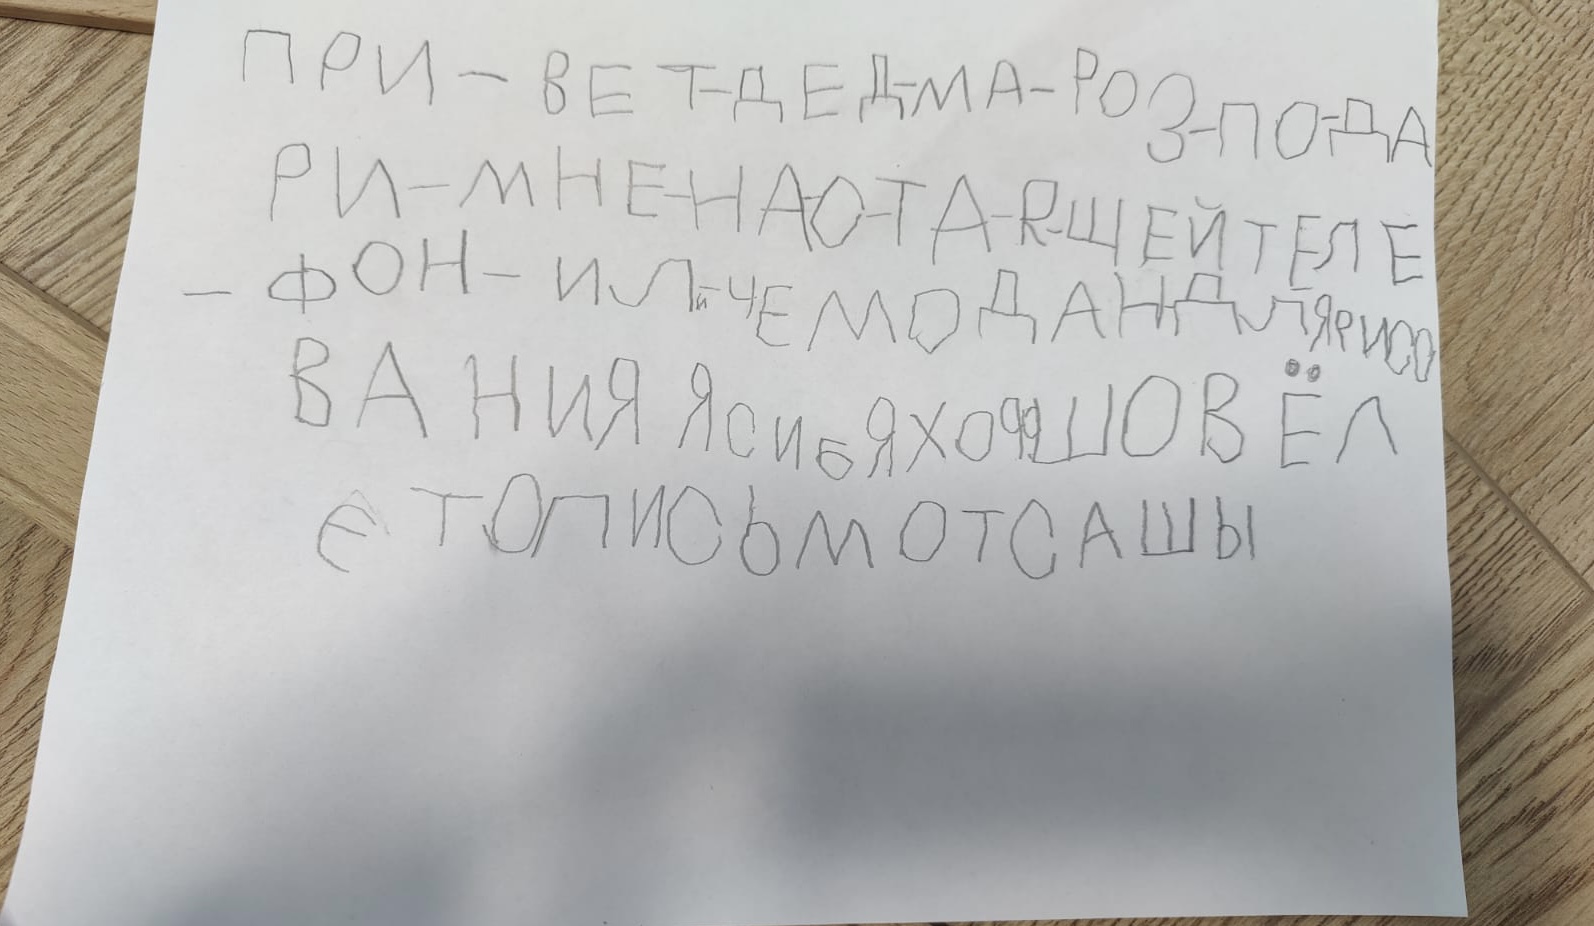 ПРИ-ВЕТ-ДЕД-МА-РОЗ-ПО-ДА
РИ-МНЕ-НАС-ТА-Я-ЩЕЙ ТЕЛЕ
-ФОН-ИЛИ-ЧЕМОДАН-ДЛЯ РИСО
ВАНИЯ Я СИБЯ ХОРАШО ВЁЛ
ЕТО ПИСЬМО ОТ САШЫ